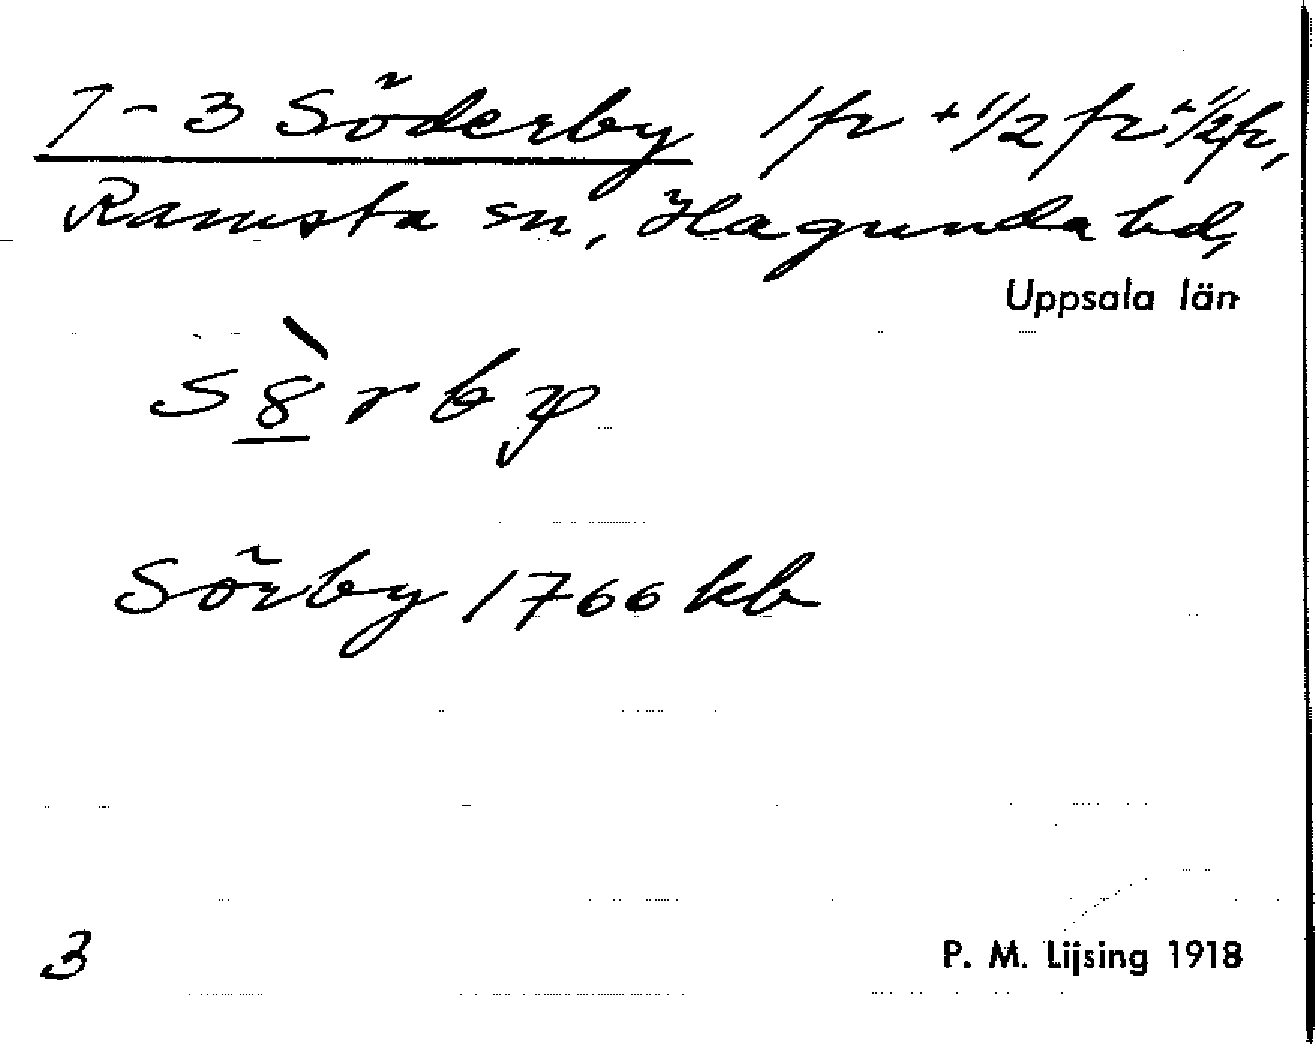 1-3 Söderby 1 fr + 1/2 fr + 1/2 fr,
Ramsta sn, Hagunda hd,
Uppsala län
s8̲̀rby
Sörby 1766 kb
3
P. M. Lijsing 1918